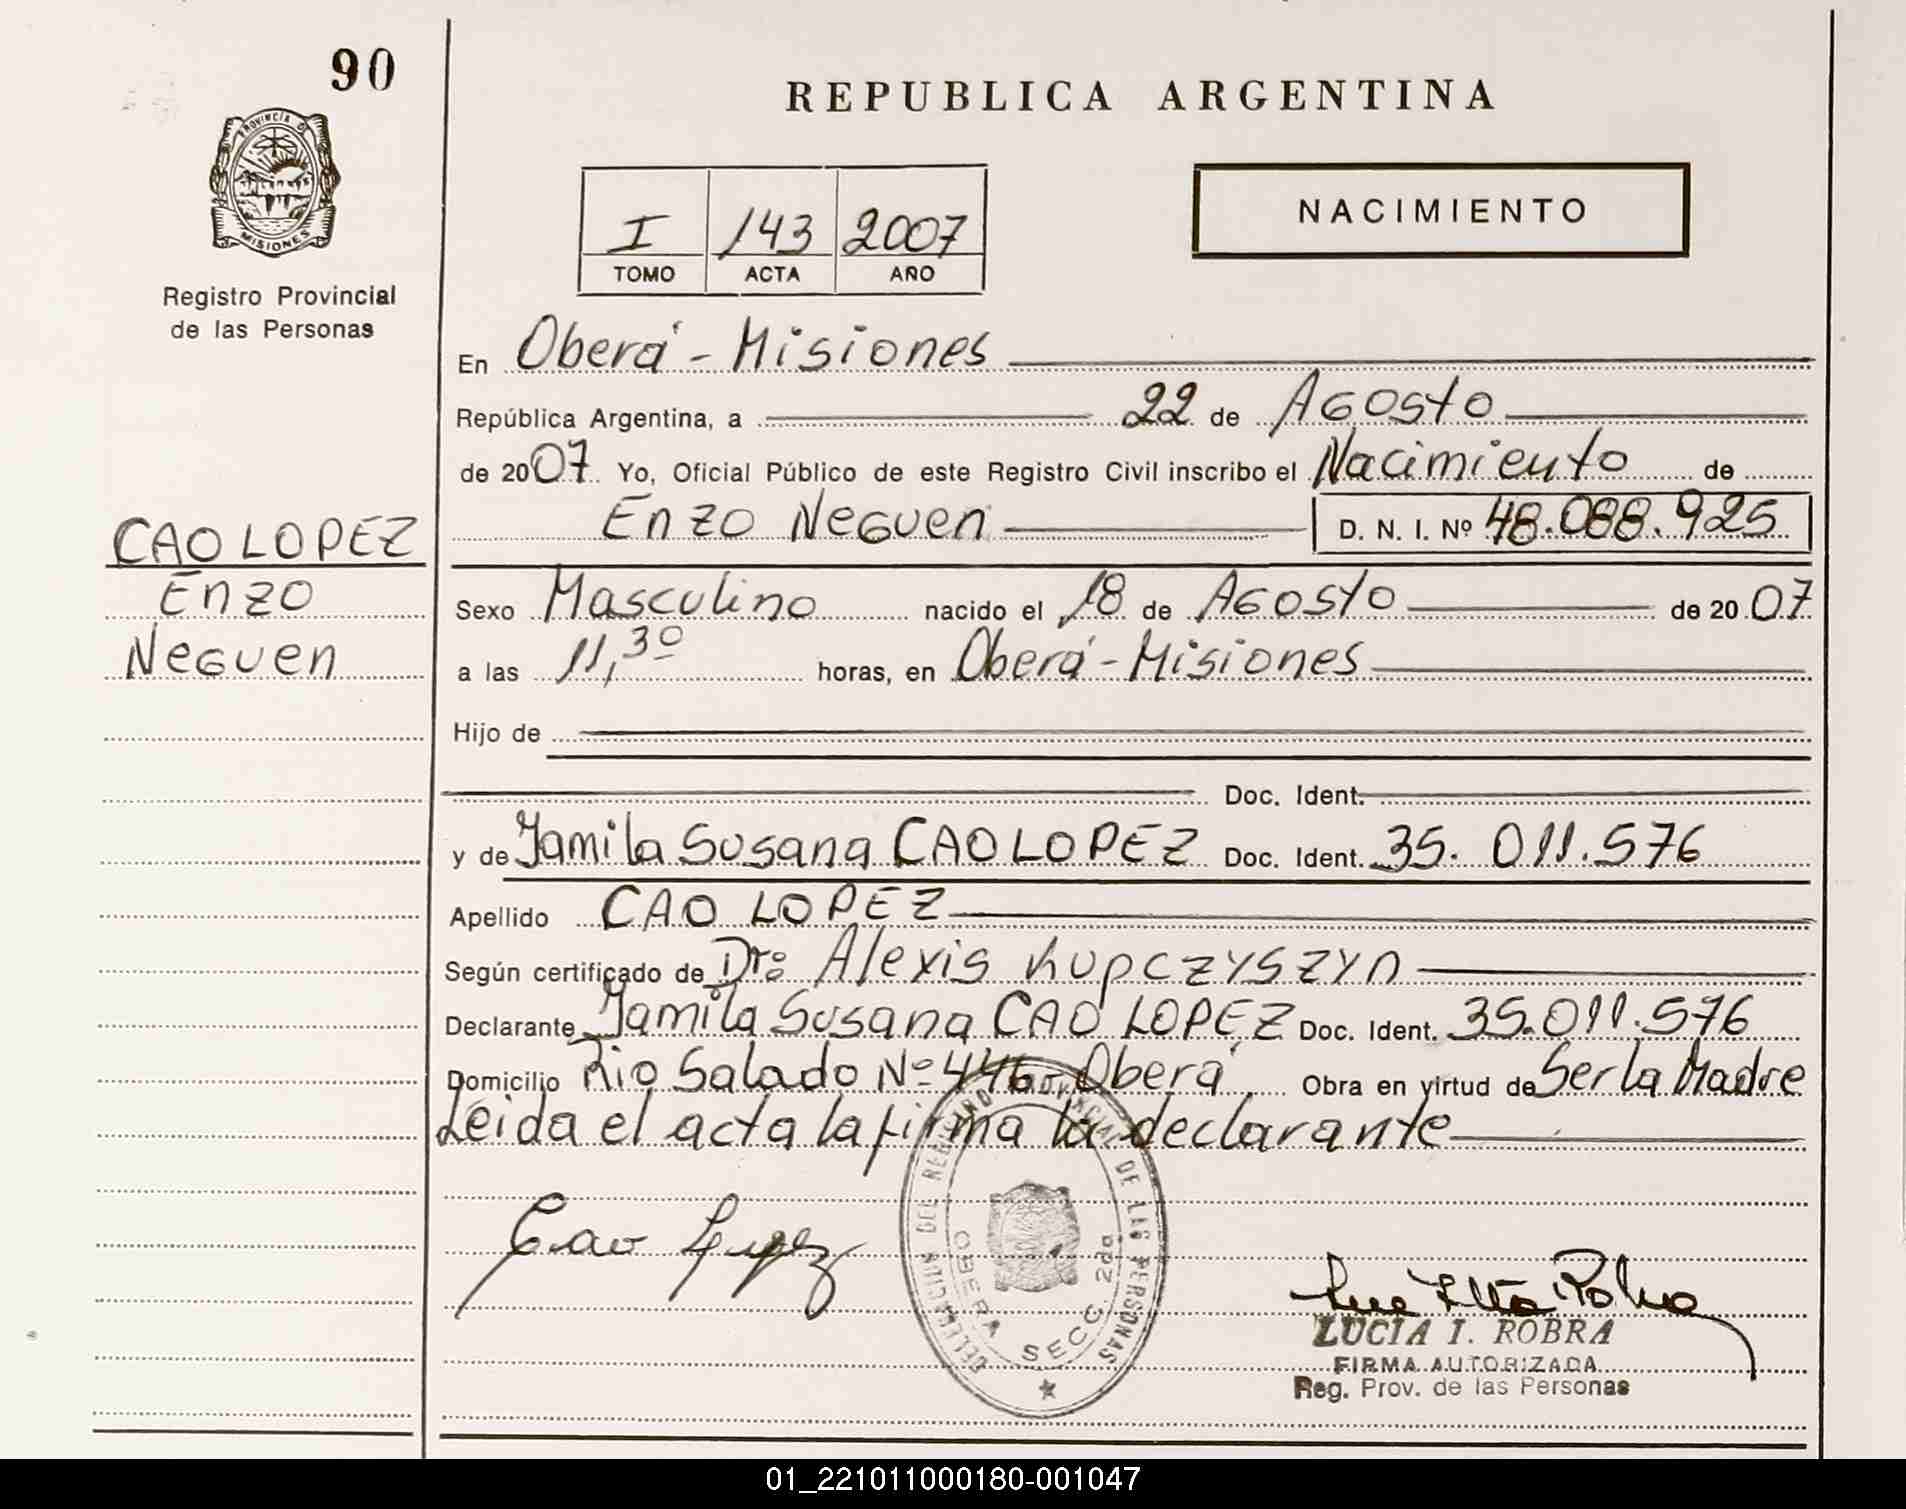 90
PROVINCIA DE
MISIONES
Registro Provincial
de las Personas
REPUBLICA ARGENTINA
I 143 2007
TOMO ACTA AÑO
NACIMIENTO
En Oberá - Misiones
República Argentina, a 22 de Agosto
de 2007 Yo, Oficial Público de este Registro Civil inscribo el Nacimiento de
Enzo Neguen D. N. I. Nº 48.088.925
CAO LOPEZ
Enzo
Neguen
Sexo Masculino nacido el 18 de Agosto de 2007
a las 11,30 horas, en Oberá - Misiones
Hijo de
Doc. Ident.
y de Yamila Susana CAO LOPEZ Doc. Ident. 35.011.576
Apellido CAO LOPEZ
Según certificado de Dr: Alexis Kupczyszyn
Declarante Yamila Susana CAO LOPEZ Doc. Ident. 35.011.576
Domicilio Rio Salado Nº 446 - Oberá Obra en virtud de Ser la Madre
Leida el acta la firma la declarante
Cao Lopez
DELEGACION DEL REGISTRO PROVINCIAL DE LAS PERSONAS
OBERA SECC. 2da
LUCIA I. ROBRA
FIRMA AUTORIZADA
Reg. Prov. de las Personas
01_221011000180-001047